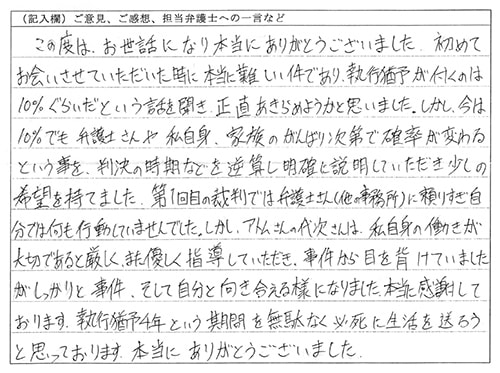 （記入欄）ご意見、ご感想、担当弁護士への一言など
この度は、お世話になり本当にありがとうございました。初めて
お会いさせていただいた時に本当に難しい件であり、執行猶予が付くのは
10％ぐらいだという話を聞き、正直あきらめようかと思いました。しかし、今は
10％でも弁護士さんや私自身、家族のがんばり次第で確率が変わる
という事を、判決の時期などを逆算し明確に説明していただき少しの
希望を持てました。第1回目の裁判では弁護士さん(他の事務所)に頼りすぎ自
分では何も行動していませんでした。しかし、アトムさんの代次さんは、私自身の働きが
大切であると厳しく、また優しく指導していただき、事件から目を背けていました
がしっかりと事件、そして自分と向き合える様になりました。本当に感謝して
おります。執行猶予4年という期間を無駄なく必死に生活を送ろう
と思っております。本当にありがとうございました。